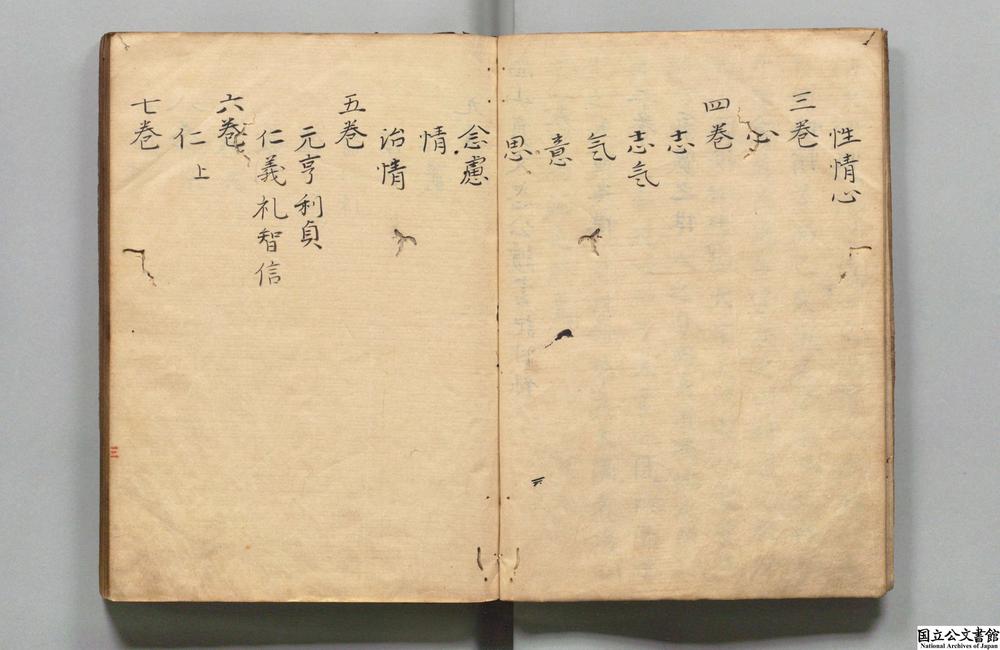 性情心
三巻
心
四巻
志
志気
気
意
思
念慮
情
治情
五巻
元亨利貞
仁義礼智信
六巻
仁上
七巻
三
三
国立公文書館
National Archives of Japan